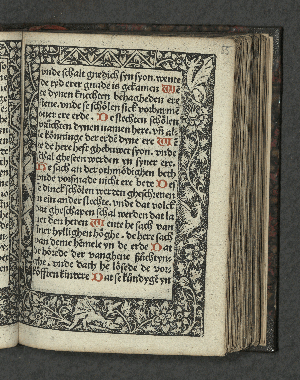 vnde schalt gnedich syn syon. wente
de tyd erer gnade is gekamen We
te dynen knechten behageden ere
stene. vnde se schölen sick vorbarme
ouer ere erde. De slechten schölen
vrüchten dynen namen here. vn̄ alle
köninge der erde dyne ere We
te de here hefft ghebuwet syon. vnde
schal gheseen werden yn syner ere.
He sach an der othmödighen beth
vnde vorsmade nicht ere bete De
se dinck schölen werden gheschreuen
in ein ander slechte. vnde dat volck
dat gheschapen schal werden dat la
uet den heren Wente he sach van
syner hyllighen höghe. de here sach
van deme hemele yn de erde Dat
he hörede der vanghene süchtyn
ghe. vnde dath he lösede de vor
störten kindere Dat se kündygen yn